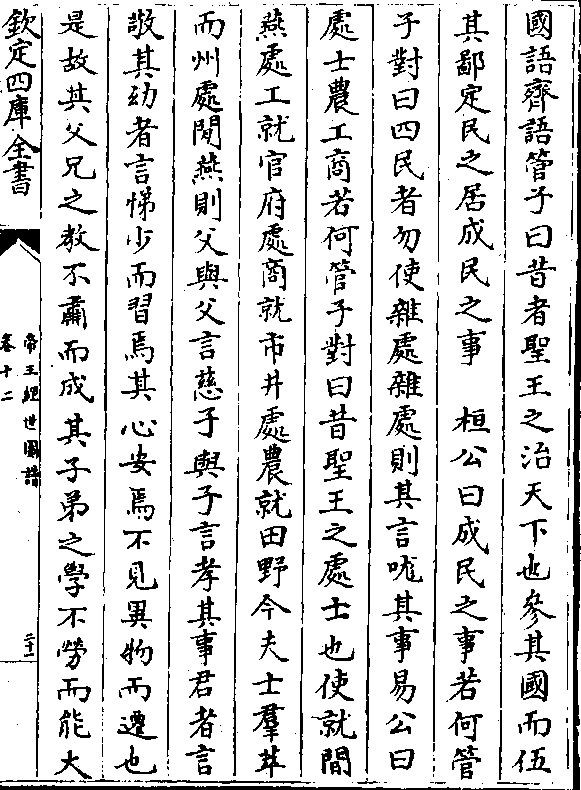 國語齊語管子曰昔者聖王之治天下也參其國而伍
其鄙定民之居成民之事　桓公曰成民之事若何管
子對曰四民者勿使雜處雜處則其言哤其事易公曰
處士農工商若何管子對曰昔聖王之處士也使就閒
燕處工就官府處商就市井處農就田野今夫士羣萃
而州處閒燕則父與父言慈子與子言孝其事君者言
敬其幼者言悌少而習焉其心安焉不見異物而遷也
是故其父兄之教不肅而成其子弟之學不勞而能大
欽定四庫全書
帝王經世圖譜
卷十二
二十一